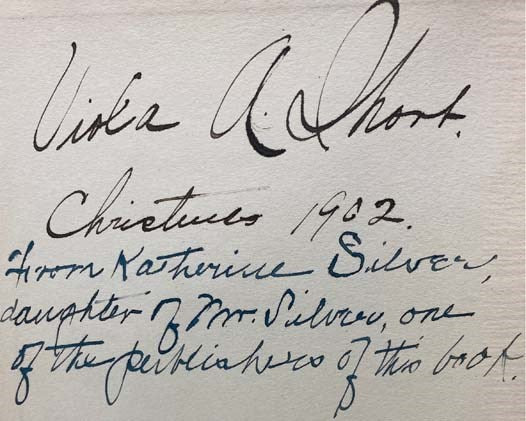 Viola A. Short.
Christmas 1902.
From Katherine Silver,
daughter of Mr. Silver, one
of the publishers of this book.